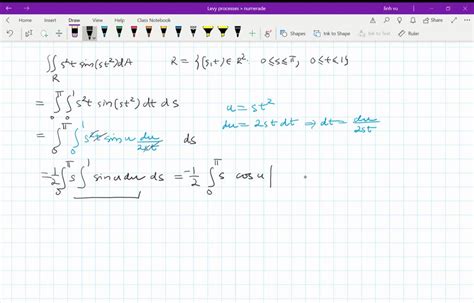 Levy processes + numerade
linh vu
Home Insert Draw View Help Class Notebook
Share
Ink to Shape Ink to Text
∬_R s²t sin(st²) dA R = {(s,t) ∈ ℝ². 0 ≤ s ≤ π, 0 ≤ t ≤ 1}
= ∫₀^π ∫₀^1 s²t sin(st²) dt ds u = st²
du = 2st dt ⇒ dt = du/2st
= ∫₀^π ∫₀^1 s²t sin u du/2st ds
= 1/2 ∫₀^π s ∫₀^1 sin u du ds = -1/2 ∫₀^π s cos u |